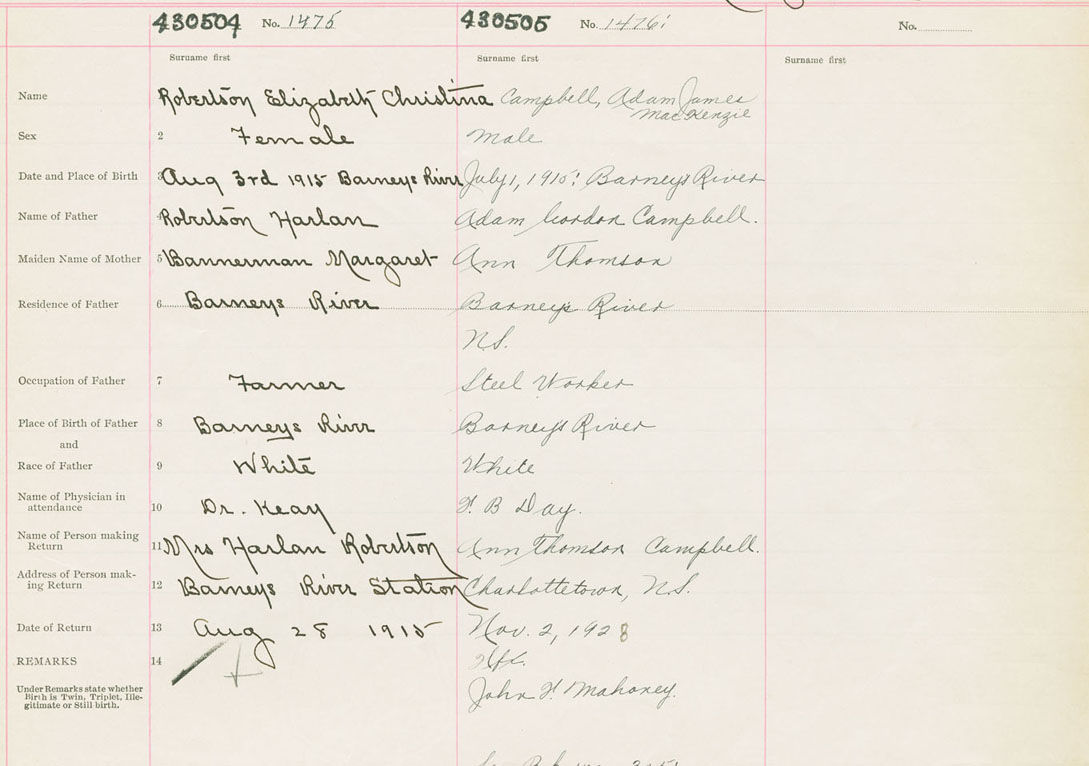 430504 No. 1475 430505 No. 1476 No.
Surname first Surname first Surname first
Name Robertson Elizabeth Christina Campbell, Adam James
MacKenzie
Sex 2 Female Male
Date and Place of Birth 3 Aug 3rd 1915 Barneys River July 1, 1915 Barneys River
Name of Father 4 Robertson Harlan Adam Gordon Campbell.
Maiden Name of Mother 5 Bannerman Margaret Ann Thomson
Residence of Father 6 Barneys River Barneys River
N.S.
Occupation of Father 7 Farmer Steel Worker
Place of Birth of Father 8 Barneys River Barneys River
and
Race of Father 9 White White
Name of Physician in
attendance 10 Dr. Keay B Day.
Name of Person making
Return 11 Mrs Harlan Robertson Ann Thomson Campbell.
Address of Person mak-
ing Return 12 Barneys River Station Charlottetown, N.S.
Date of Return 13 Aug 28 1915 Nov. 2, 1928
REMARKS 14
Under Remarks state whether
Birth is Twin, Triplet, Ille-
gitimate or Still birth.
John Mahoney.